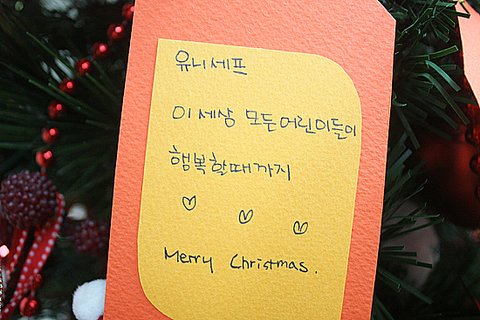 유니세프
이 세상 모든 어린이들이
행복할때까지
Merry Christmas.